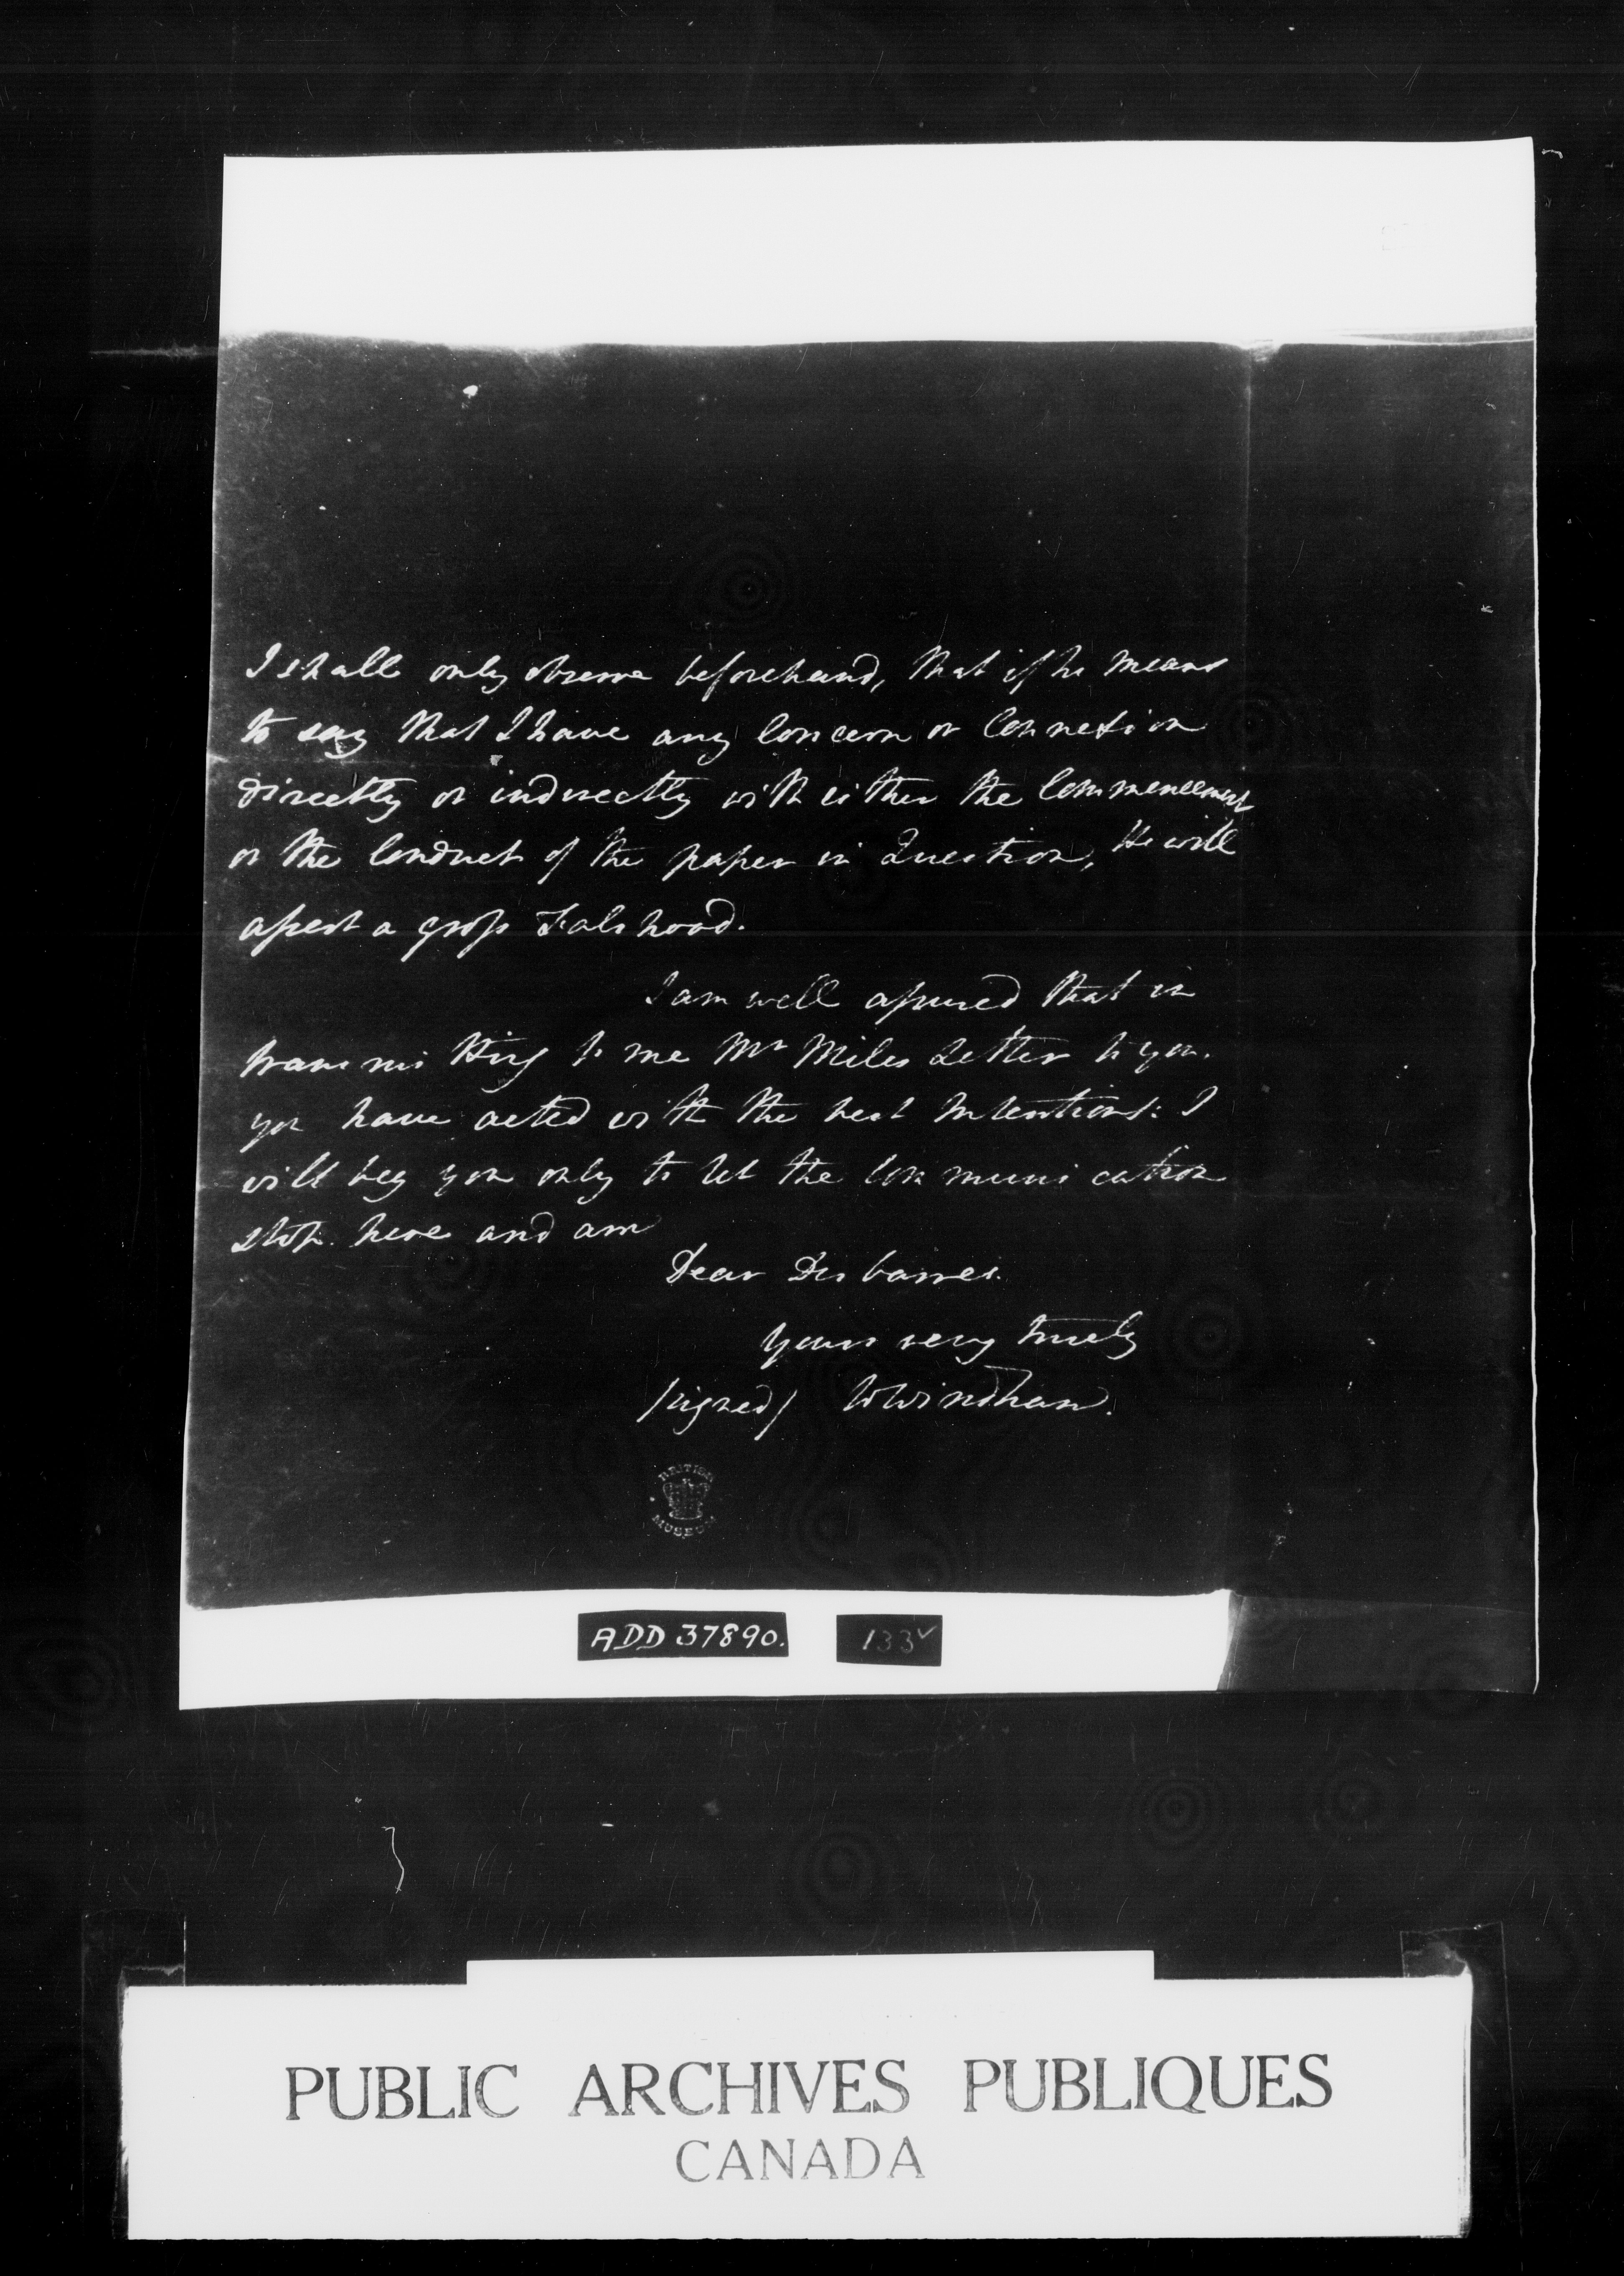 I shall only observe beforehand, that if he means
to say that I have any Concern or Connexion
directly or indirectly with either the Commencement
or the Conduct of the paper in Question, He will
assert a gross Falshood.
I am well assured that in
transmitting to me Mr Miles Letter to you.
you have acted with the best Intentions: I
will beg you only to let the Communication
stop here and am
Dear Desbarres.
yours very truely
/signed/ W Windham.
BRITISH
MUSEUM
ADD 37890. 133v
PUBLIC ARCHIVES PUBLIQUES
CANADA